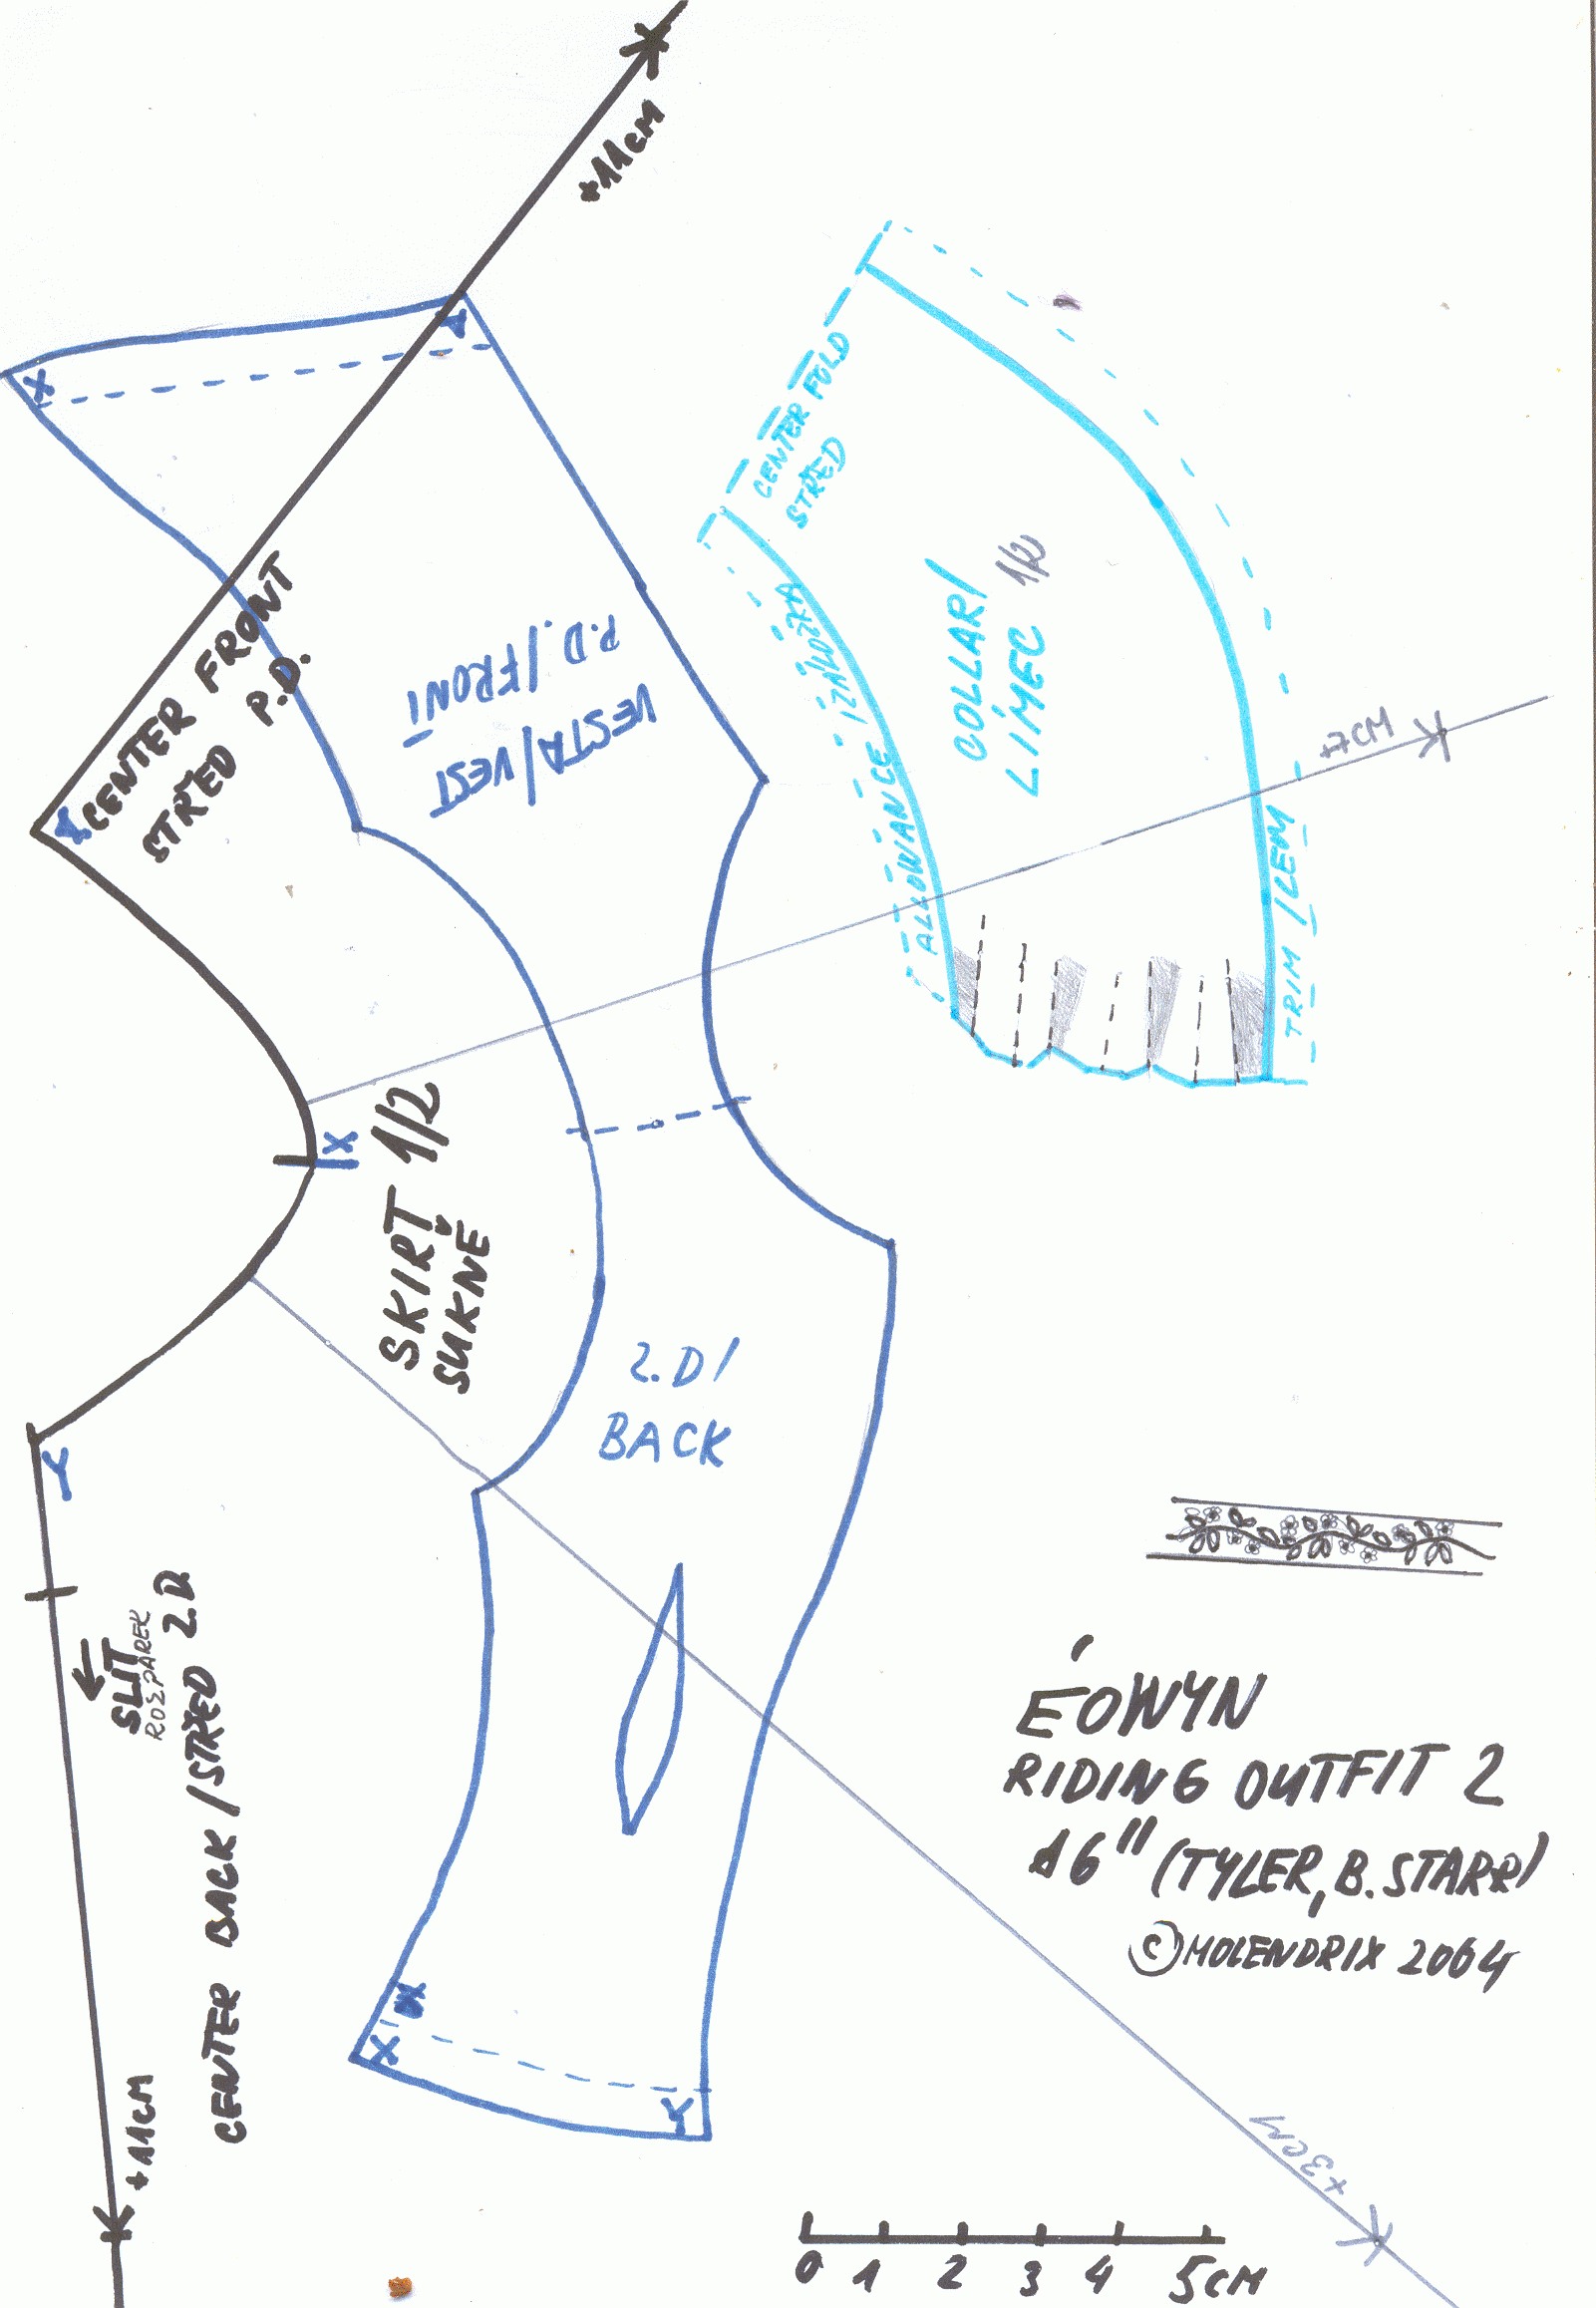 +11CM
X
Y
CENTER FRONT
STŘED P.D.
X
VESTA/VEST
P.D./FRONT
CENTER FOLD
STŘED
COLLAR/
LÍMEC 1/2
ALLOWANCE /ZÁLOŽKA
TRIM /LEM
+7CM
X
SKIRT 1/2
SUKNĚ
2.D/
BACK
Y
SLIT
ROZPAREK
CENTER BACK/STŘED Z.D.
+11CM
X
Y
ÉOWYN
RIDING OUTFIT 2
16" (TYLER, B.STARR)
©MOLENDRIX 2004
+3CM
0 1 2 3 4 5CM